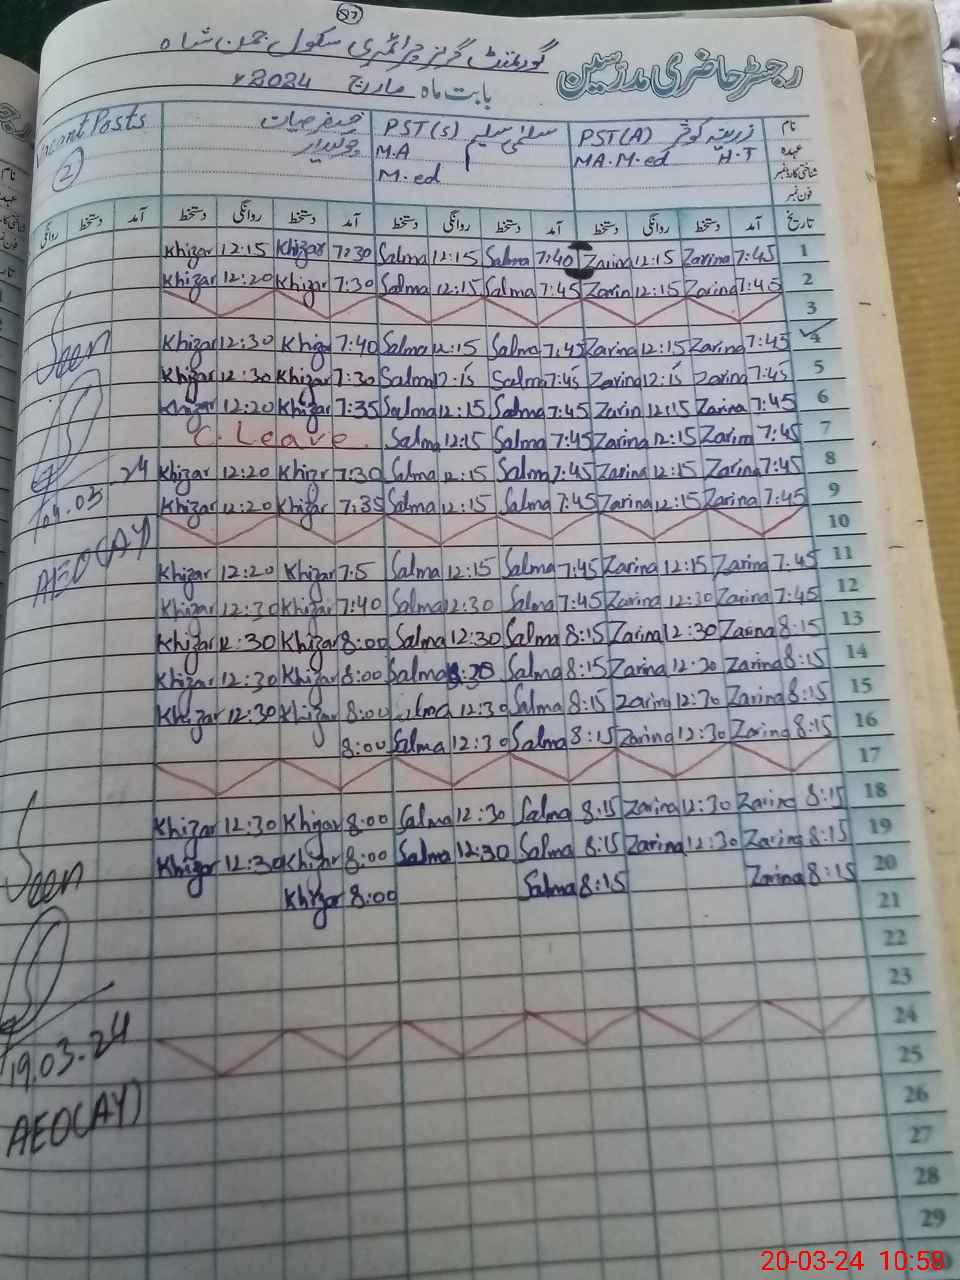 87
گورنمنٹ گرلز پرائمری سکول چمن شاہ
رجسٹر حاضری مدرسین
بابت ماہ مارچ 2024ء
Vacant Posts
2
نام
زرینہ کوثر
PST(A)
سلمیٰ سلیم
PST(S)
خضر حیات
عہدہ
H.T
MA.M.ed
M.A
چوکیدار
شناختی کارڈ نمبر
M.ed
فون نمبر
تاریخ آمد دستخط روانگی دستخط آمد دستخط روانگی دستخط آمد دستخط روانگی دستخط آمد دستخط روانگی
Khizar 12:15 Khizar 7:30 Salma 12:15 Salma 7:40 Zarina 12:15 Zarina 7:45 1
Khizar 12:20 Khizar 7:30 Salma 12:15 Salma 7:45 Zarin 12:15 Zarina 7:45 2
3
Khizar 12:30 Khizar 7:40 Salma 12:15 Salma 7:45 Zarina 12:15 Zarina 7:45 4
Khizar 12:30 Khizar 7:30 Salma 12:15 Salma 7:45 Zarina 12:15 Zarina 7:45 5
Khizar 12:20 Khizar 7:35 Salma 12:15 Salma 7:45 Zarin 12:15 Zarina 7:45 6
C. Leave. Salma 12:15 Salma 7:45 Zarina 12:15 Zarina 7:45 7
Khizar 12:20 Khizr 7:30 Salma 12:15 Salma 7:45 Zarina 12:15 Zarina 7:45 8
Khizar 12:20 Khizar 7:35 Salma 12:15 Salma 7:45 Zarina 12:15 Zarina 7:45 9
10
Khizar 12:20 Khizar 7:5 Salma 12:15 Salma 7:45 Zarina 12:15 Zarina 7:45 11
Khizar 12:30 Khizar 7:40 Salma 12:30 Salma 7:45 Zarina 12:30 Zarina 7:45 12
Khizar 12:30 Khizar 8:00 Salma 12:30 Salma 8:15 Zarina 12:30 Zarina 8:15 13
Khizar 12:30 Khizar 8:00 Salma Salma 8:15 Zarina 12:30 Zarina 8:15 14
Khizar 12:30 Khizar 8:00 Salma 12:30 Salma 8:15 Zarina 12:30 Zarina 8:15 15
8:00 Salma 12:30 Salma 8:15 Zarina 12:30 Zarina 8:15 16
17
Khizar 12:30 Khizar 8:00 Salma 12:30 Salma 8:15 Zarina 12:30 Zarina 8:15 18
Khizar 12:30 Khizar 8:00 Salma 12:30 Salma 8:15 Zarina 12:30 Zarina 8:15 19
Khizar 8:00 Salma 8:15 Zarina 8:15 20
21
22
23
24
25
26
27
28
29
Seen
04.03.24
AEO(AY)
Seen
19.03.24
AEO(AY)
20-03-24 10:58